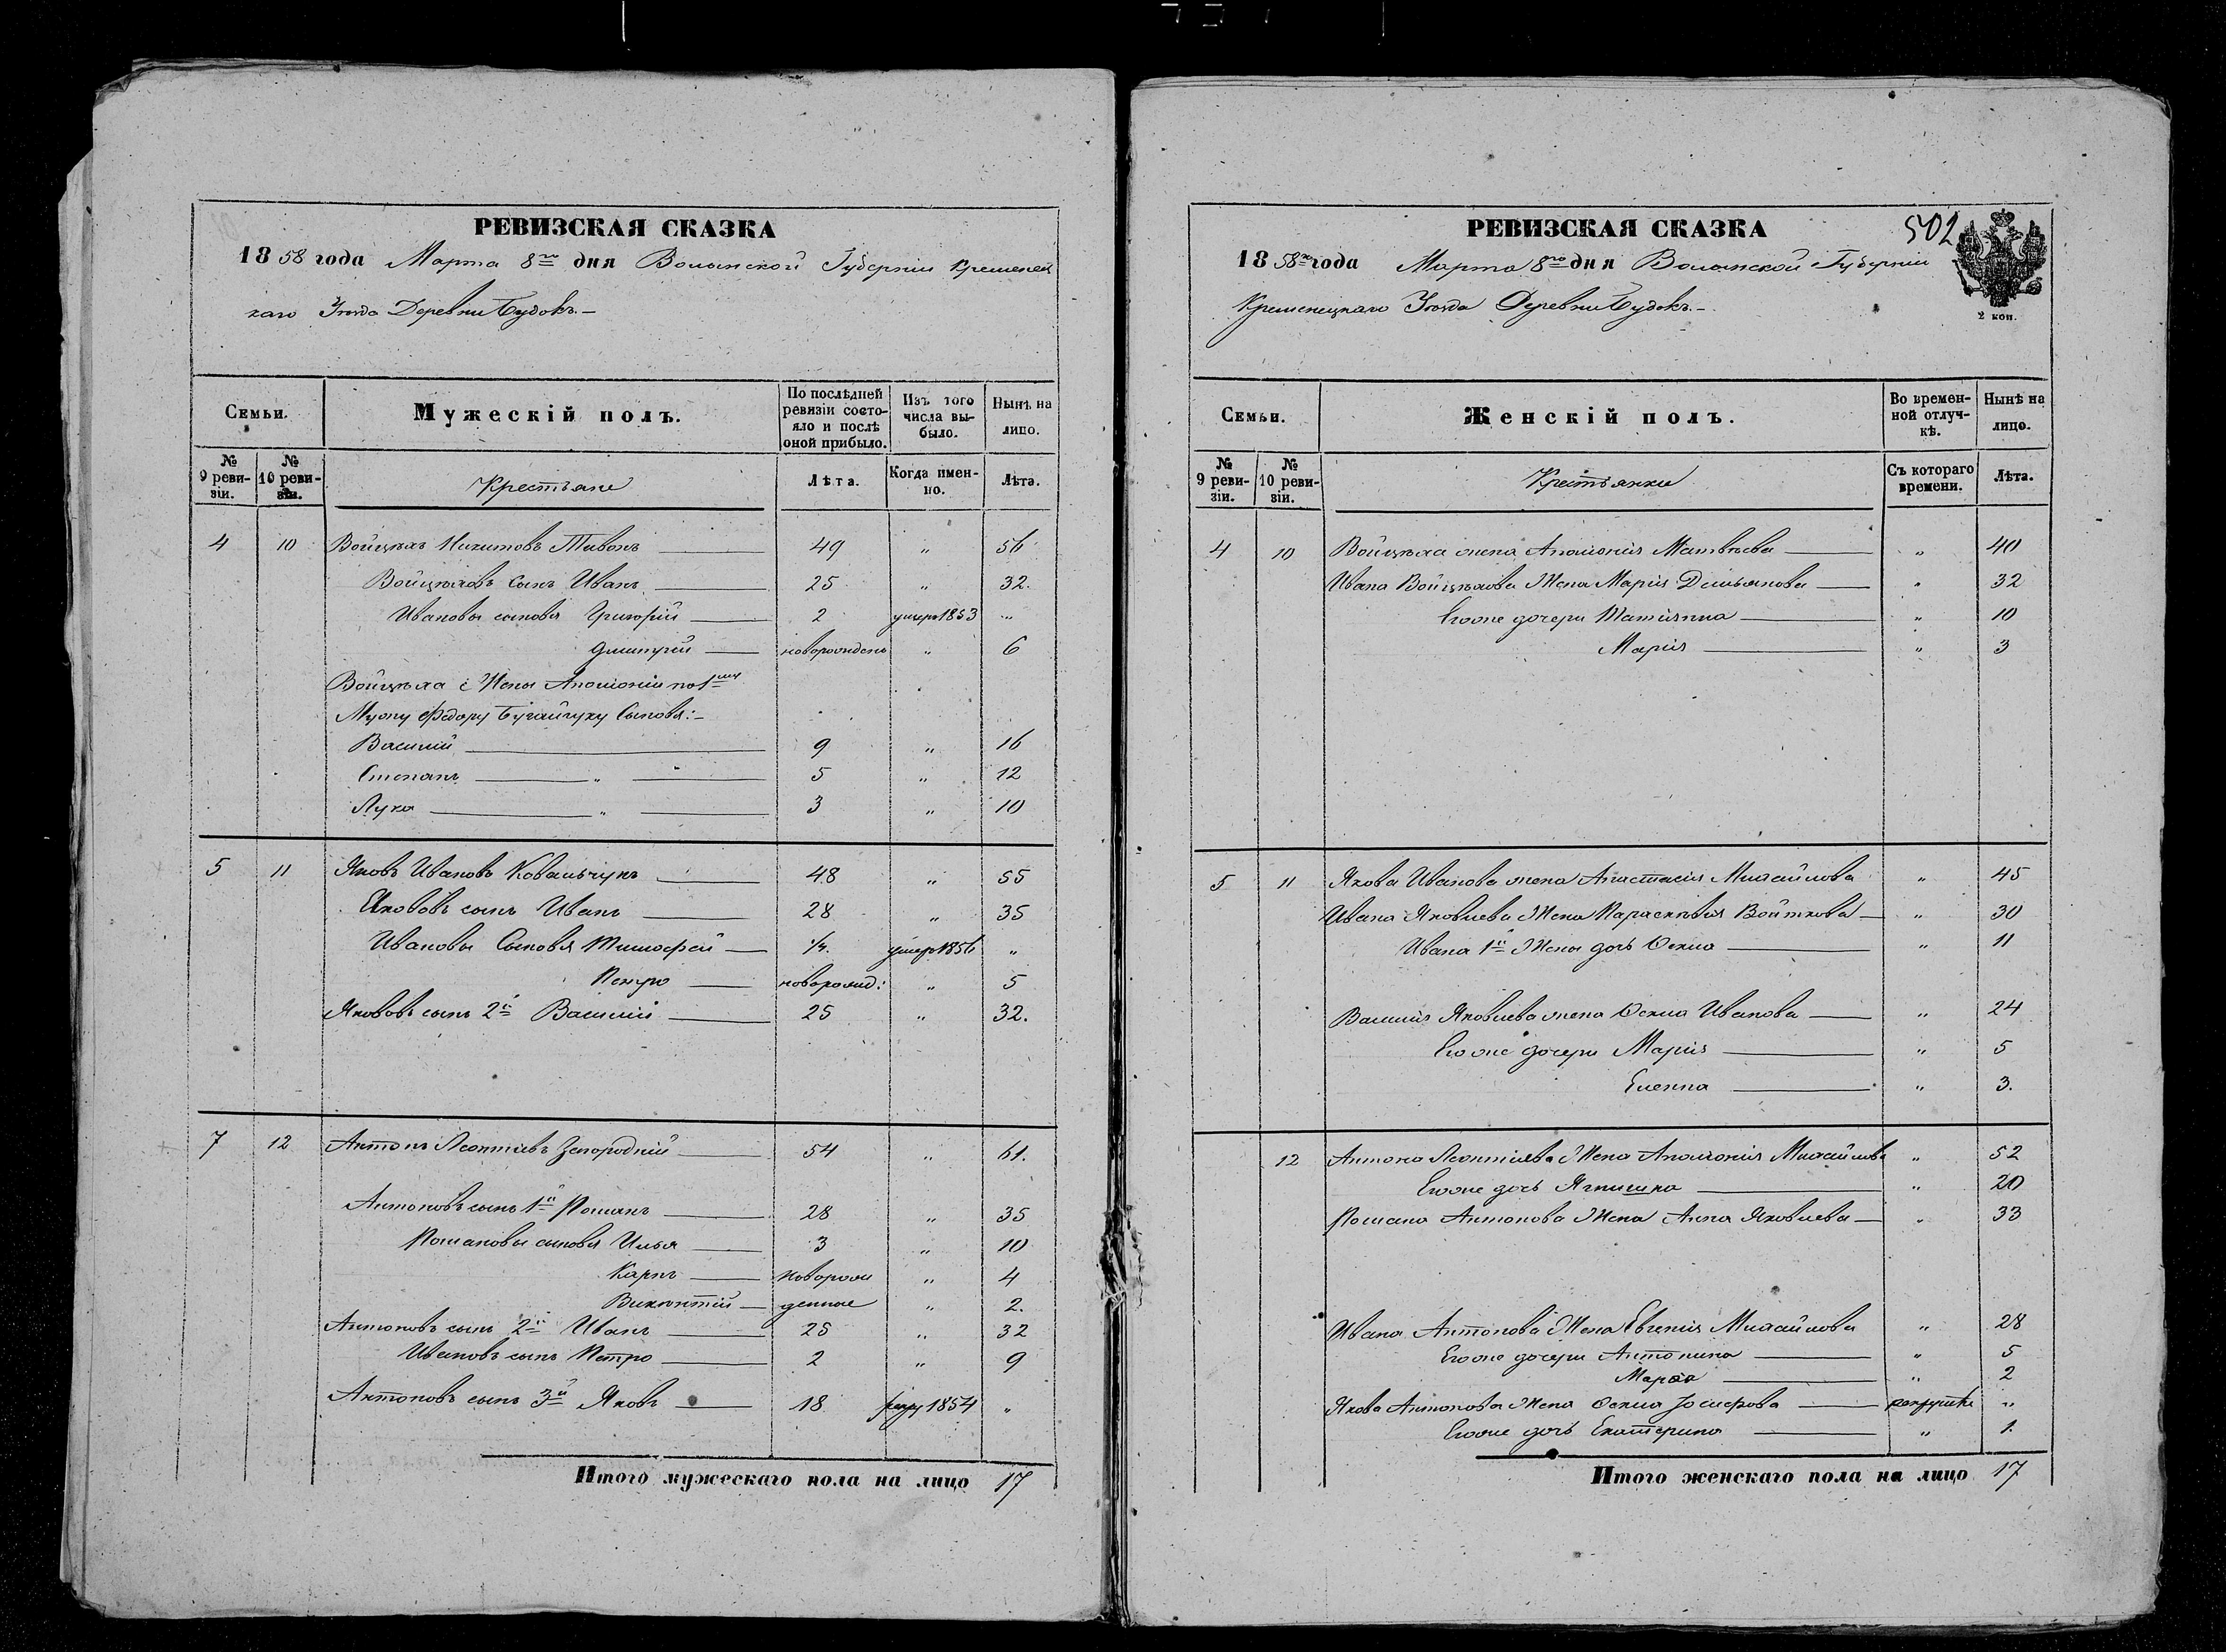 РЕВИЗСКАЯ СКАЗКА
1858 года Марта 8го дня Волынской Губерніи Кременец
каго Уѣзда Деревни Будокъ.-
Семьи.
Мужескій полъ.
По послѣдней ревизіи состояло и послѣ оной прибыло.
Изъ того числа выбыло.
Нынѣ на лицо.
№ 9 ревизіи.
№ 10 ревизіи.
Крестьяне
Лѣта.
Когда именно.
Лѣта.
4 10 Войцѣхъ Никитовъ 49 " 56
Войцѣховъ сынъ Иванъ 25 " 32.
Ивановы сыновья Григорій 2 умеръ 1853 "
Дмитрій новорожденъ " 6
Войцѣха і Жены Аполоніи по 1му
Мужу Федору Бугайчуку Сыновья:-
Василій 9 " 16
Степанъ " 5 " 12
Лука " 3 " 10
5 11 Яковъ Ивановъ Ковальчукъ 48 " 55
Яковъ сынъ Иванъ 28 " 35
Ивановы Сыновья Тимофей 1/4. умеръ 1856 "
Петро новорожд: " 5
Яковъ сынъ 2й Василій 25 " 32.
7 12 Антонъ Леонтіевъ Загородній 54 " 61.
Антоновъ сынъ 1й Романъ 28 " 35
Романовы сыновья Илья 3 " 10
Карпъ новорож " 4
Викентій денные " 2.
Антоновъ сынъ 2й Иванъ 25 " 32
Ивановъ сынъ Петро 2 " 9
Антоновъ сынъ 3й Яковъ 18 рекру 1854 "
Итого мужескаго пола на лицо 17
РЕВИЗСКАЯ СКАЗКА
502
1858го года Марта 8го дня Волынской Губерніи
Кременецкаго Уѣзда Деревни Будокъ.-
2 коп.
Семьи.
Женскій полъ.
Во временной отлучкѣ.
Нынѣ на лицо.
№ 9 ревизіи.
№ 10 ревизіи.
Крестьянки
Съ котораго времени.
Лѣта.
4 10 Войцѣха жена Аполонія Матвѣева " 40
Ивана Войцѣхова Жена Марія Демьянова " 32
Егоже дочери Татіянна " 10
Марія " 3
5 11 Якова Иванова жена Анастасія Михайлова " 45
Ивана Яковлева Жена Параскѣвія Войткова " 30
Ивана 1й Жены дочь Оскна " 11
Василія Яковлева жена Оскна Иванова " 24
Егоже дочери Марія " 5
Еленна " 3.
12 Антона Леонтіева Жена Аполонія Михайлова " 52
Егоже дочь Ягнишка " 20
Романа Антонова Жена Анна Яковлева " 33
Ивана Антонова Жена Евгенія Михайлова " 28
Егоже дочери Антонина " 5
Марія " 2
Якова Антонова Жена Оскна Іосифова рекрутка "
Егоже дочь Екатерина " 1.
Итого женскаго пола на лицо 17